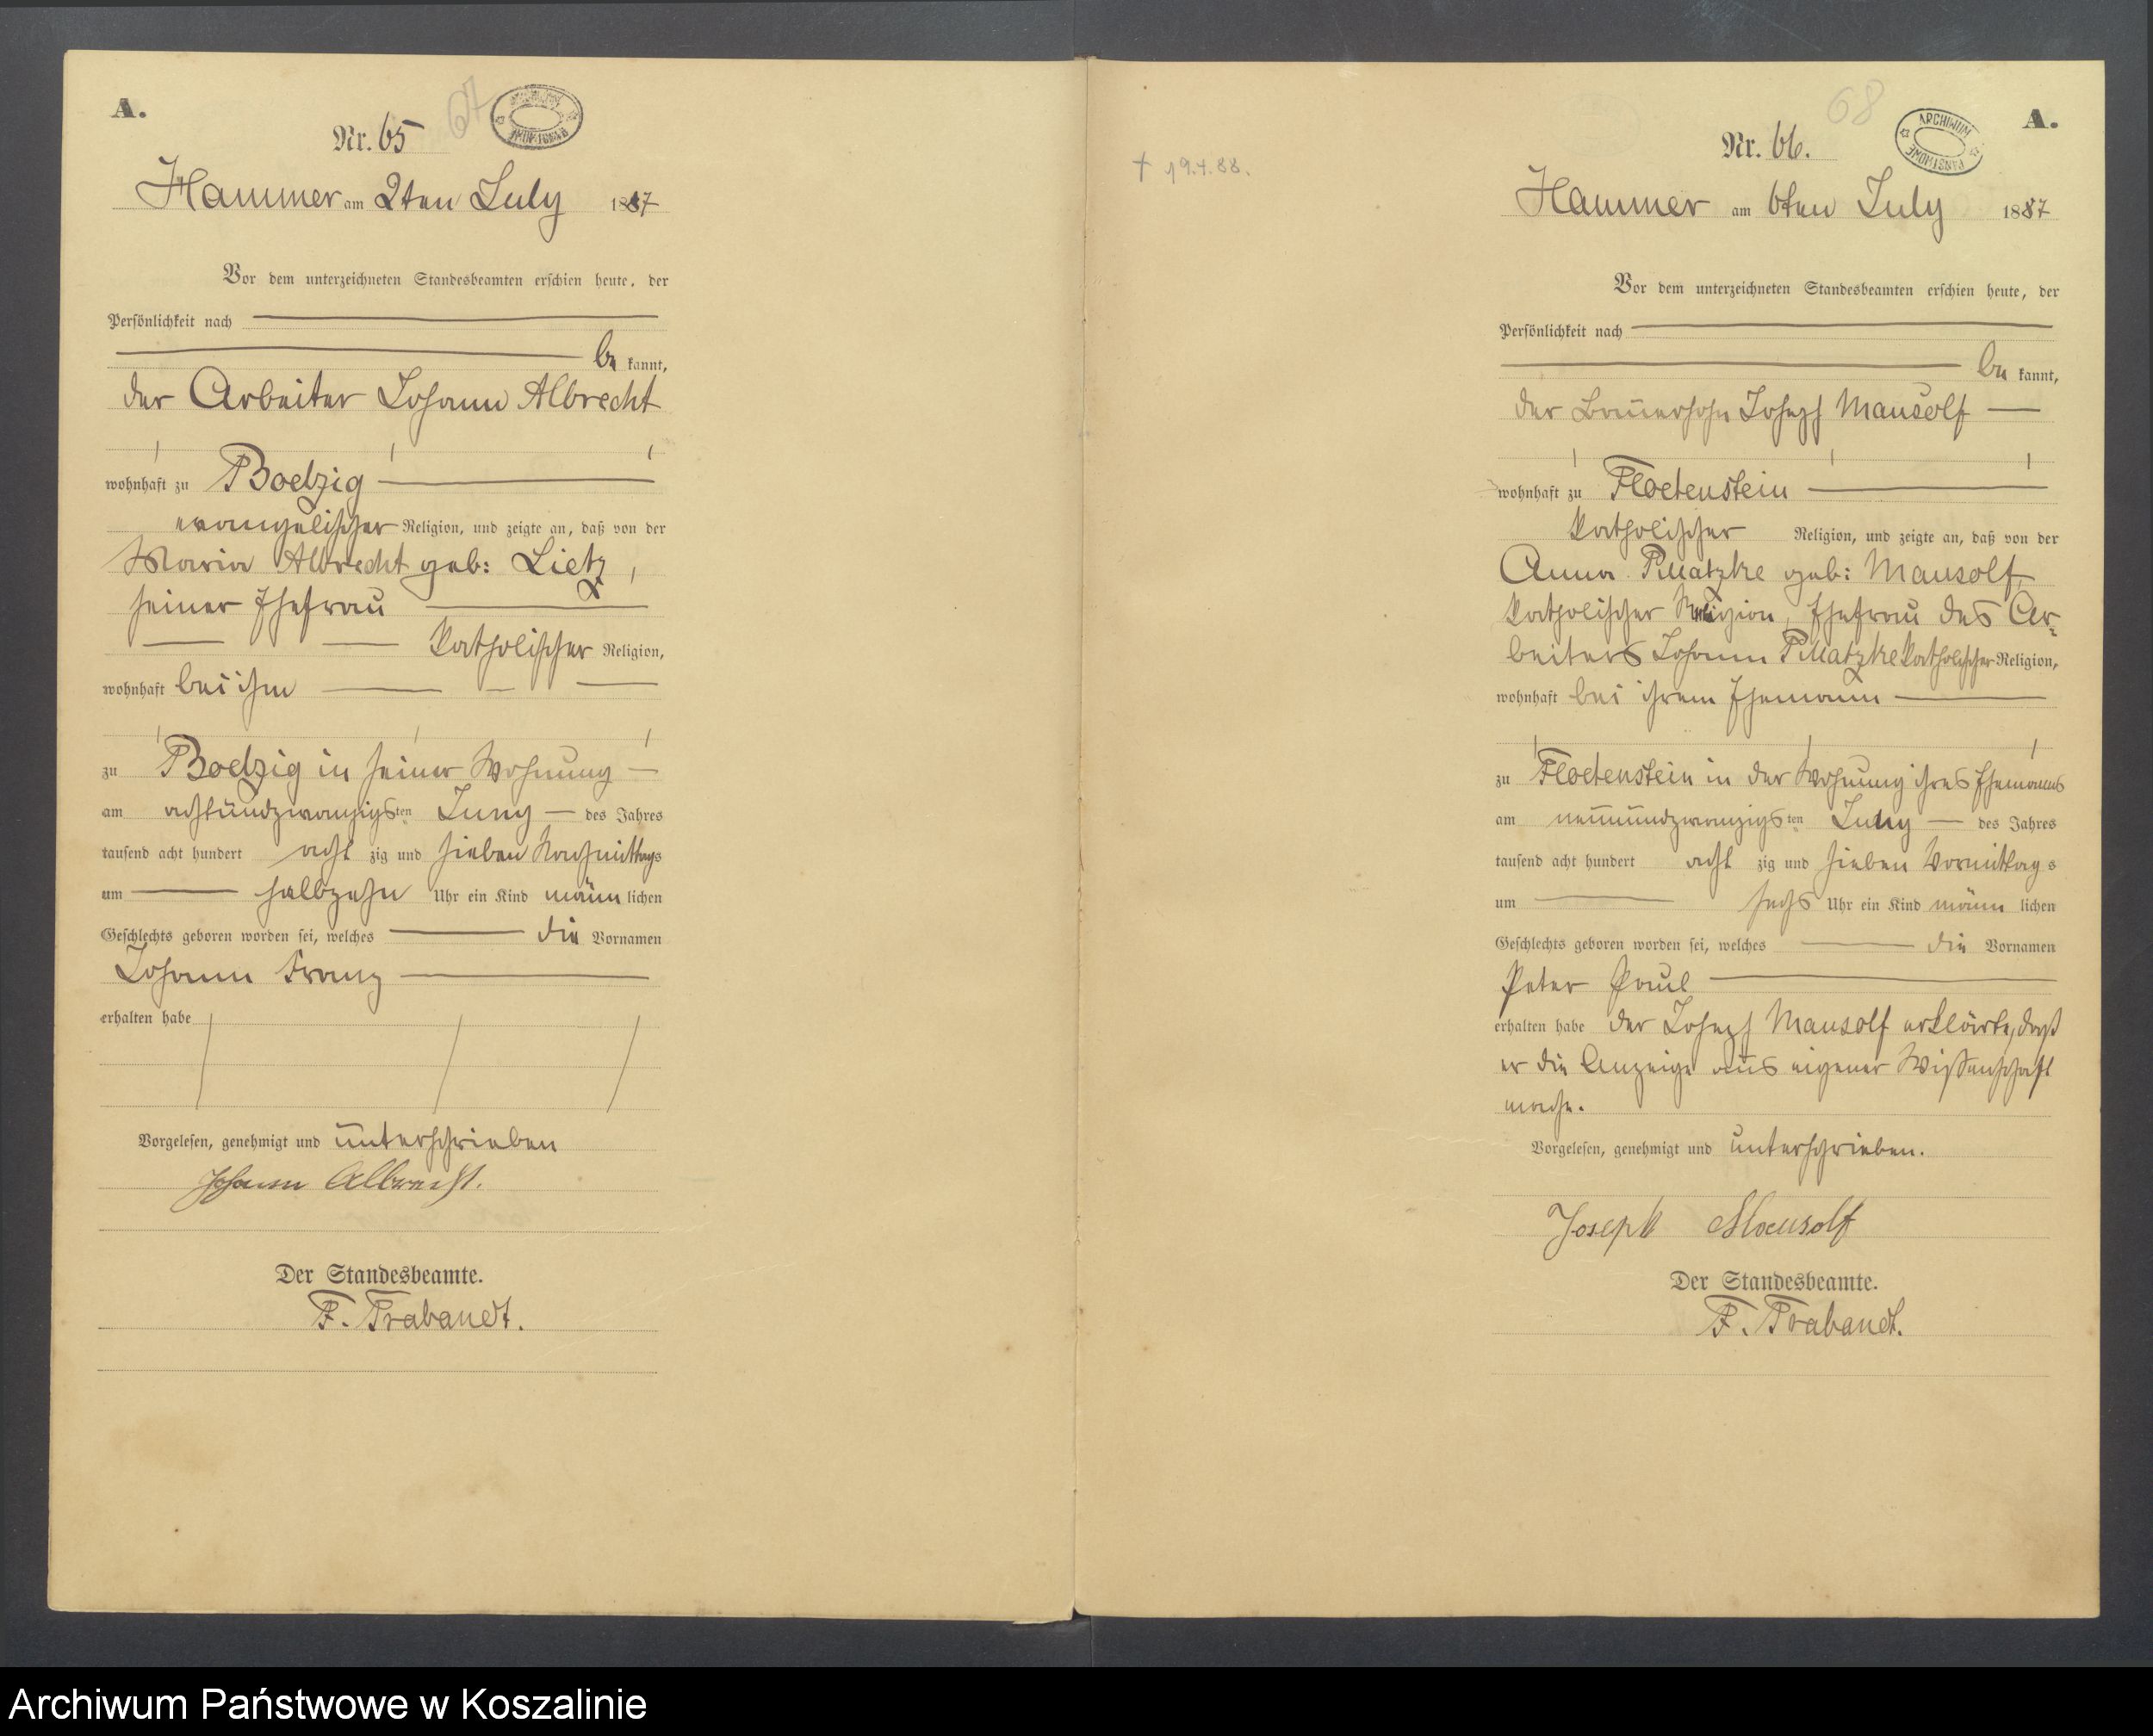 A.
67
Nr. 65
Hammer am 2ten July 1887
Vor dem unterzeichneten Standesbeamten erschien heute, der
Persönlichkeit nach
be kannt,
der Arbeiter Johann Albrecht
wohnhaft zu Boelzig
evangelischer Religion, und zeigte an, daß von der
Maria Albrecht geb: Lietz,
seiner Ehefrau
katholischer Religion,
wohnhaft bei ihm
zu Boelzig in seiner Wohnung
am achtundzwanzigsten Juny des Jahres
tausend acht hundert acht zig und sieben Nachmittags
um halbzehn Uhr ein Kind männ lichen
Geschlechts geboren worden sei, welches die Vornamen
Johann Franz
erhalten habe
Vorgelesen, genehmigt und unterschrieben
Johann Albrecht.
Der Standesbeamte.
F. Trabandt.
† 19.4.88.
68
ARCHIWUM PAŃSTWOWE
A.
Nr. 66.
Hammer am 6ten July 1887
Vor dem unterzeichneten Standesbeamten erschien heute, der
Persönlichkeit nach
be kannt,
der Bauersohn Joseph Mausolf
wohnhaft zu Floetenstein
katholischer Religion, und zeigte an, daß von der
Anna Pillatzke geb: Mausolf,
katholischer Religion, Ehefrau des Ar-
beiters Johann Pillatzke katholischer Religion,
wohnhaft bei ihrem Ehemann
zu Floetenstein in der Wohnung ihres Ehemanns
am neunundzwanzigsten Juny des Jahres
tausend acht hundert acht zig und sieben Vormittags
um sechs Uhr ein Kind männ lichen
Geschlechts geboren worden sei, welches die Vornamen
Peter Paul
erhalten habe der Joseph Mausolf erklärte, daß
er die Anzeige aus eigener Wissenschaft
mache.
Vorgelesen, genehmigt und unterschrieben.
Joseph Mausolf
Der Standesbeamte.
F. Trabandt.
Archiwum Państwowe w Koszalinie